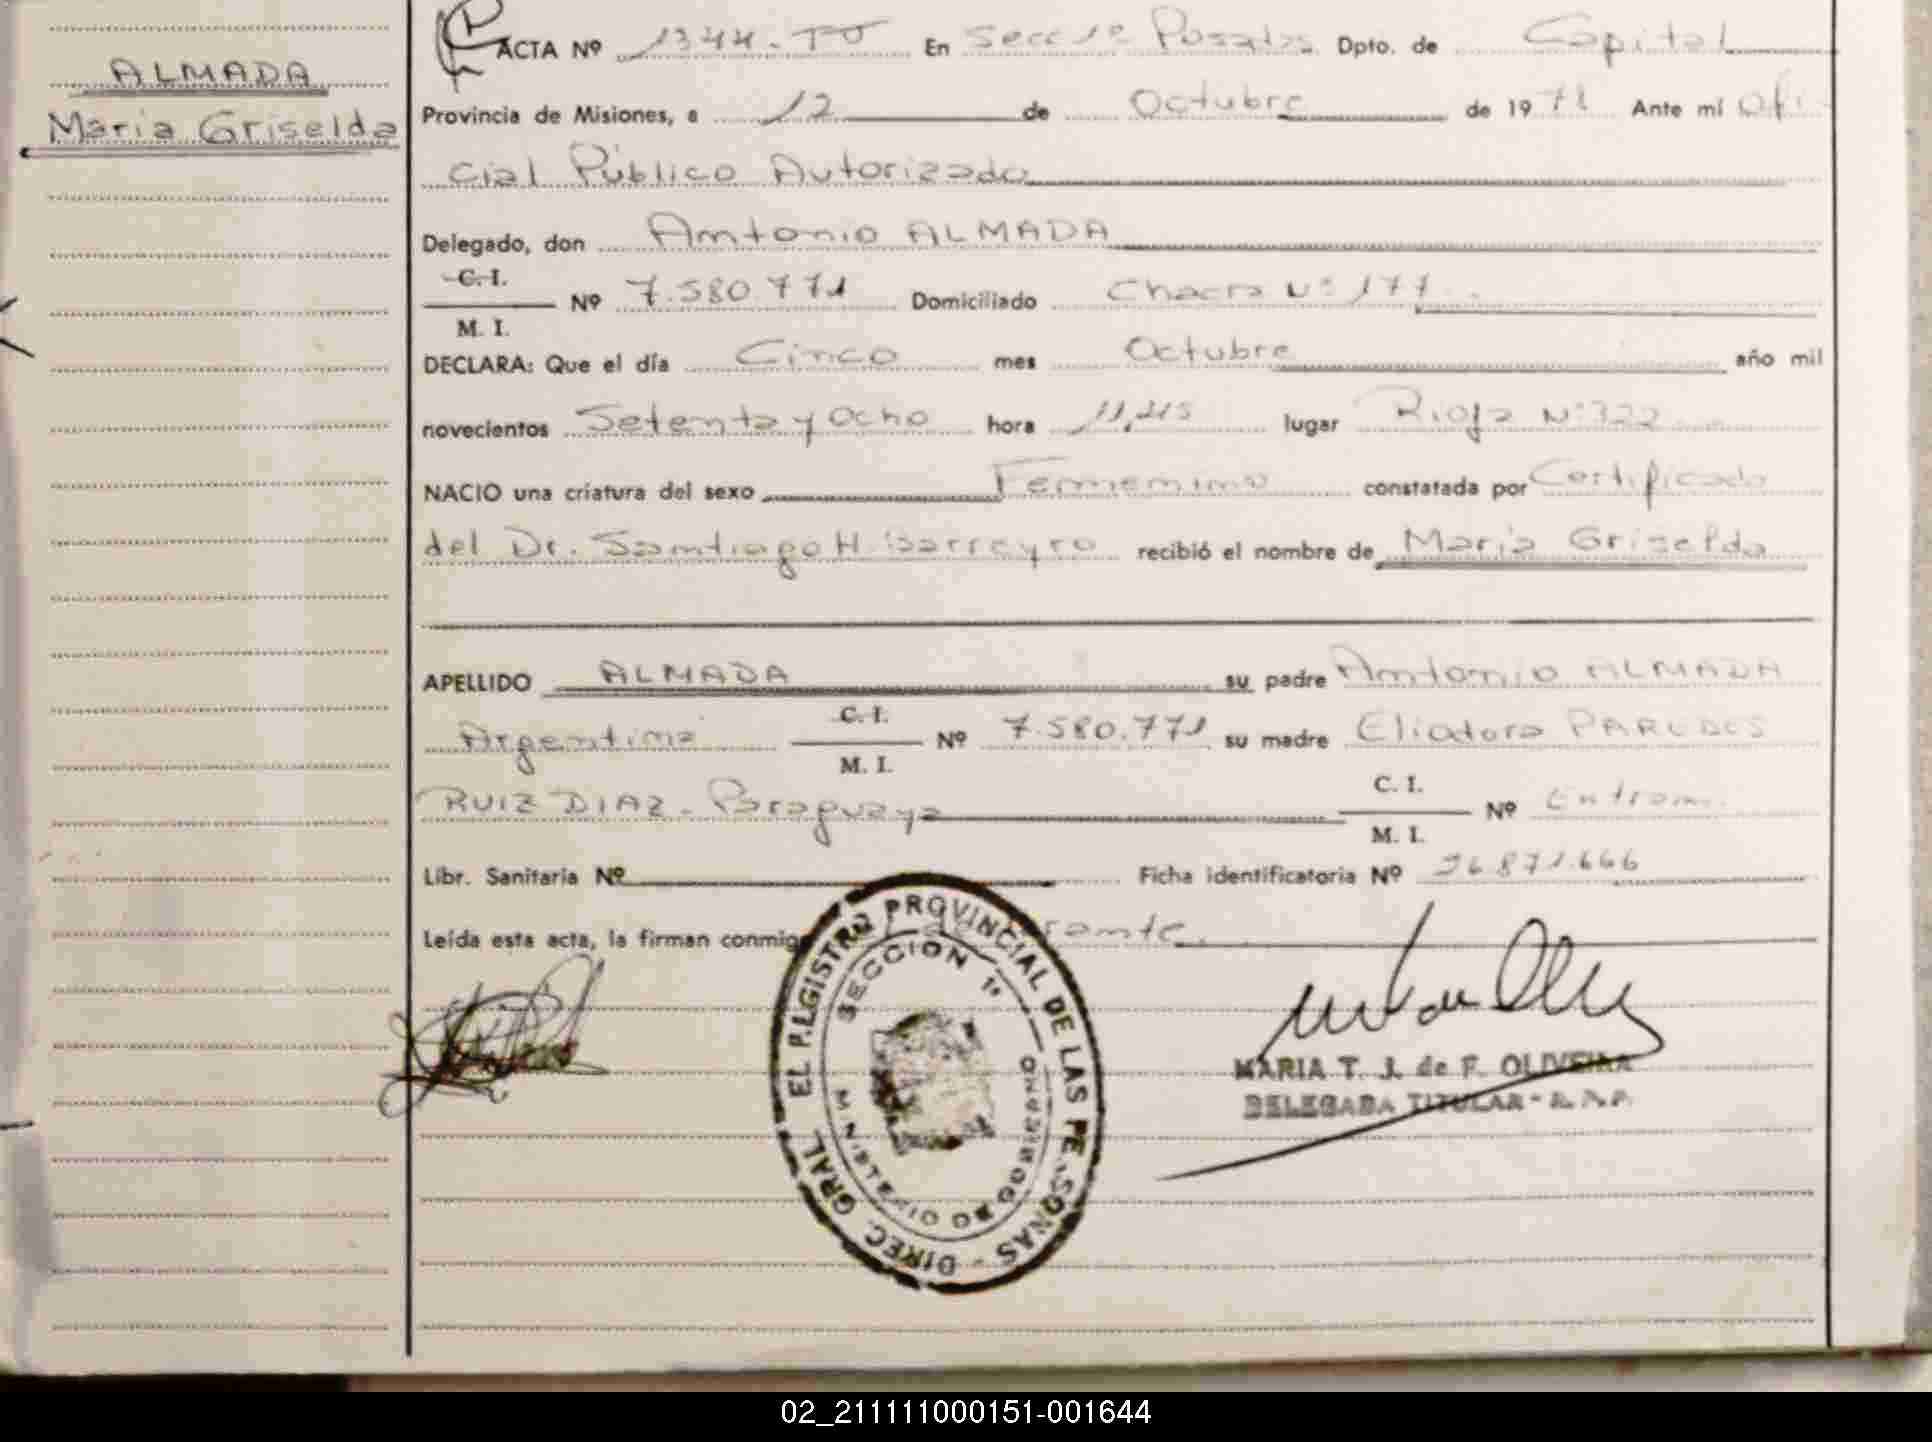 ALMADA
Maria Griselda
ACTA Nº 1344-TO En Secc 1ª Posadas Dpto. de Capital
Provincia de Misiones, a 12 de Octubre de 1978 Ante mí Ofi-
cial Público Autorizado
Delegado, don Antonio ALMADA
C. I.
Nº 7.580.771 Domiciliado Chacra Nº 177
M. I.
DECLARA: Que el día Cinco mes Octubre año mil
novecientos Setenta y Ocho hora 11,45 lugar Rioja Nº 322
NACIO una criatura del sexo Femenino constatada por Certificado
del Dr. Santiago H. Barreyro recibió el nombre de Maria Griselda
APELLIDO ALMADA su padre Antonio ALMADA
C. I.
Argentina Nº 7.580.771 su madre Eliodora PAREDES
M. I.
C. I.
RUIZ DIAZ - Paraguaya Nº
M. I.
Libr. Sanitaria Nº Ficha identificatoria Nº 26.871.666
Leída esta acta, la firman conmigo
DIREC. GRAL EL REGISTRO PROVINCIAL DE LAS PERSONAS
SECCION 1ª
MARIA T. J. de F. OLIVEIRA
DELEGADA TITULAR - R. P. P.
02_211111000151-001644